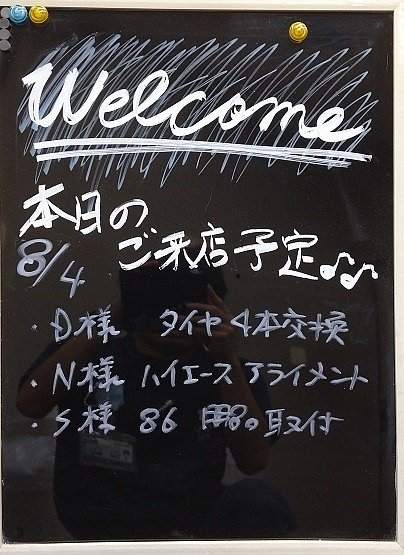 Welcome
本日の
ご来店予定♪♪
8/4
・D様 タイヤ4本交換
・N様 ハイエース アライメント
・S様 86 取付